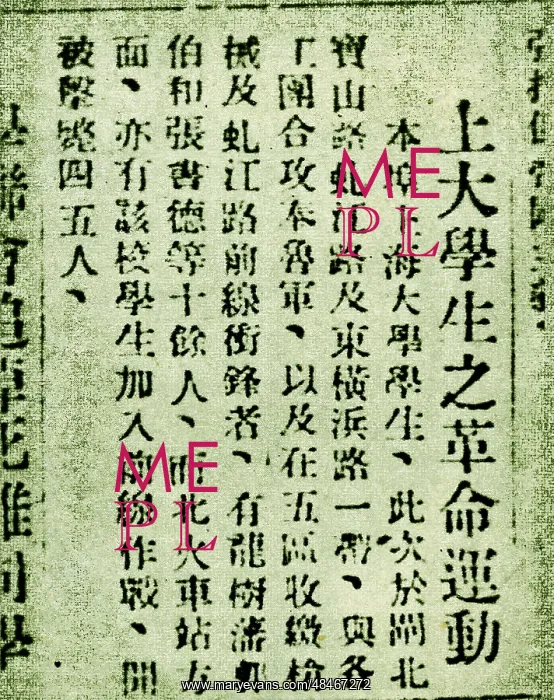 上大學生之革命運動
本埠上海大學學生、此次於閘北
寶山路虬江路及東橫浜路一帶、與各
工團合攻本魯軍、以及在五區收繳槍
械及虬江路前線衝鋒者、有龍樹藩
伯和張書德等十餘人、而北火車站方
面、亦有該校學生加入前線作戰、聞
被擊斃四五人、
ME
PL
ME
PL
www.maryevans.com/48467272